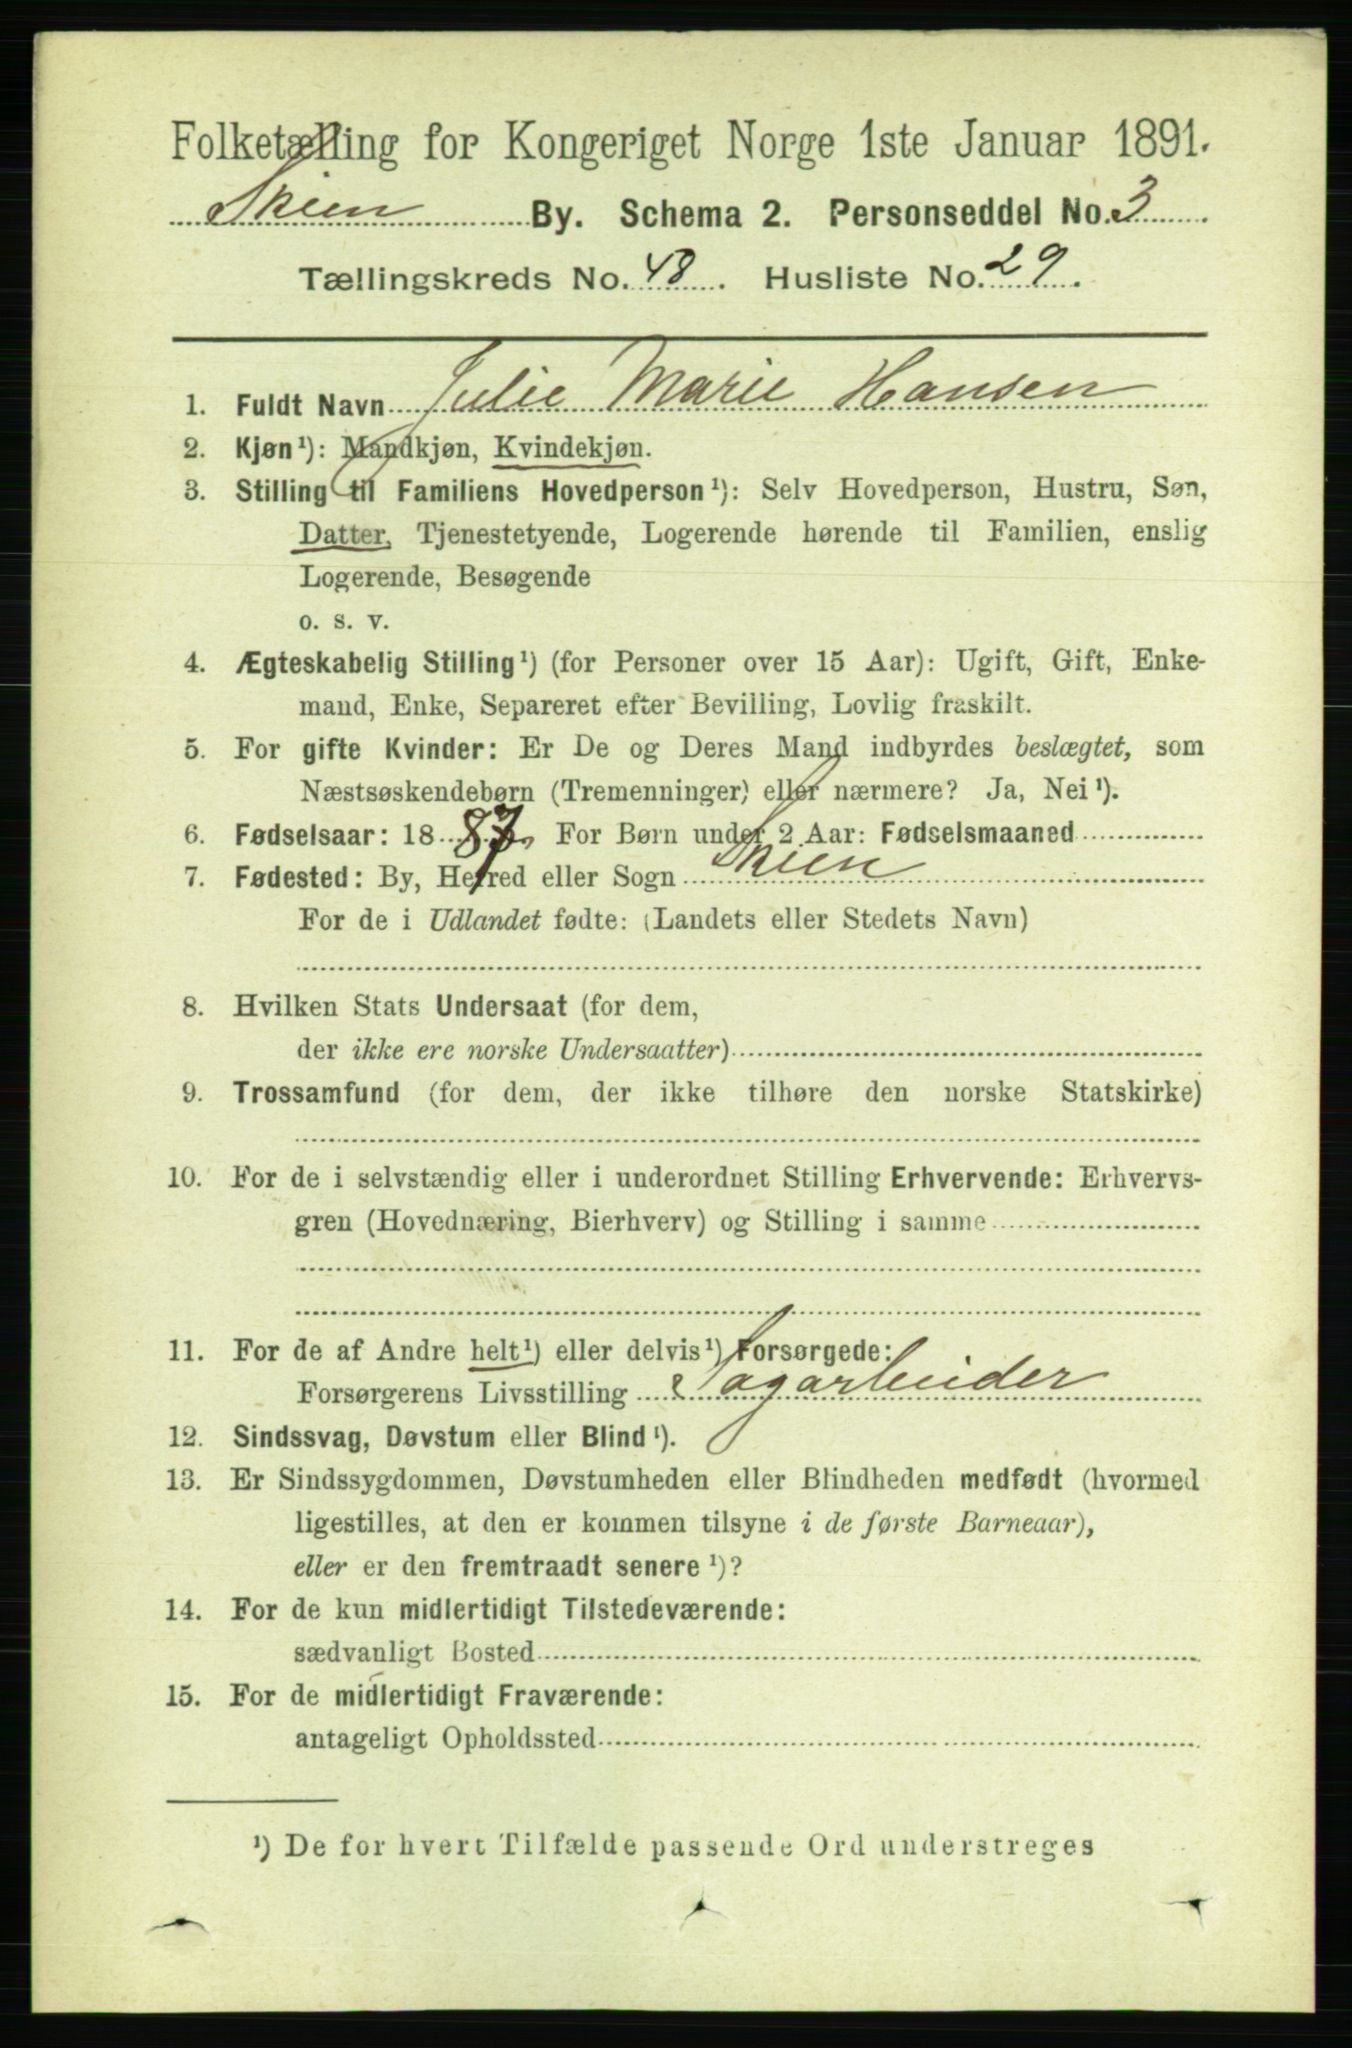 Folketælling for Kongeriget Norge 1ste Januar 1891.
Skien By. Schema 2. Personseddel No. 3
Tællingskreds No. 48. Husliste No. 29.
1. Fuldt Navn Julie Marie Hansen
2. Kjøn¹): Mandkjøn, Kvindekjøn.
3. Stilling til Familiens Hovedperson¹): Selv Hovedperson, Hustru, Søn,
Datter, Tjenestetyende, Logerende hørende til Familien, enslig
Logerende, Besøgende
o. s. v.
4. Ægteskabelig Stilling¹) (for Personer over 15 Aar): Ugift, Gift, Enke-
mand, Enke, Separeret efter Bevilling, Lovlig fraskilt.
5. For gifte Kvinder: Er De og Deres Mand indbyrdes beslægtet, som
Næstsøskendebørn (Tremenninger) eller nærmere? Ja, Nei¹).
6. Fødselsaar: 1887. For Børn under 2 Aar: Fødselsmaaned
7. Fødested: By, Herred eller Sogn Skien
For de i Udlandet fødte: (Landets eller Stedets Navn)
8. Hvilken Stats Undersaat (for dem,
der ikke ere norske Undersaatter)
9. Trossamfund (for dem, der ikke tilhøre den norske Statskirke)
10. For de i selvstændig eller i underordnet Stilling Erhvervende: Erhvervs-
gren (Hovednæring, Bierhverv) og Stilling i samme
11. For de af Andre helt¹) eller delvis¹) Forsørgede:
Forsørgerens Livsstilling Sagarbeider
12. Sindssvag, Døvstum eller Blind¹).
13. Er Sindssygdommen, Døvstumheden eller Blindheden medfødt (hvormed
ligestilles, at den er kommen tilsyne i de første Barneaar),
eller er den fremtraadt senere¹)?
14. For de kun midlertidigt Tilstedeværende:
sædvanligt Bosted
15. For de midlertidigt Fraværende:
antageligt Opholdssted
¹) De for hvert Tilfælde passende Ord understreges